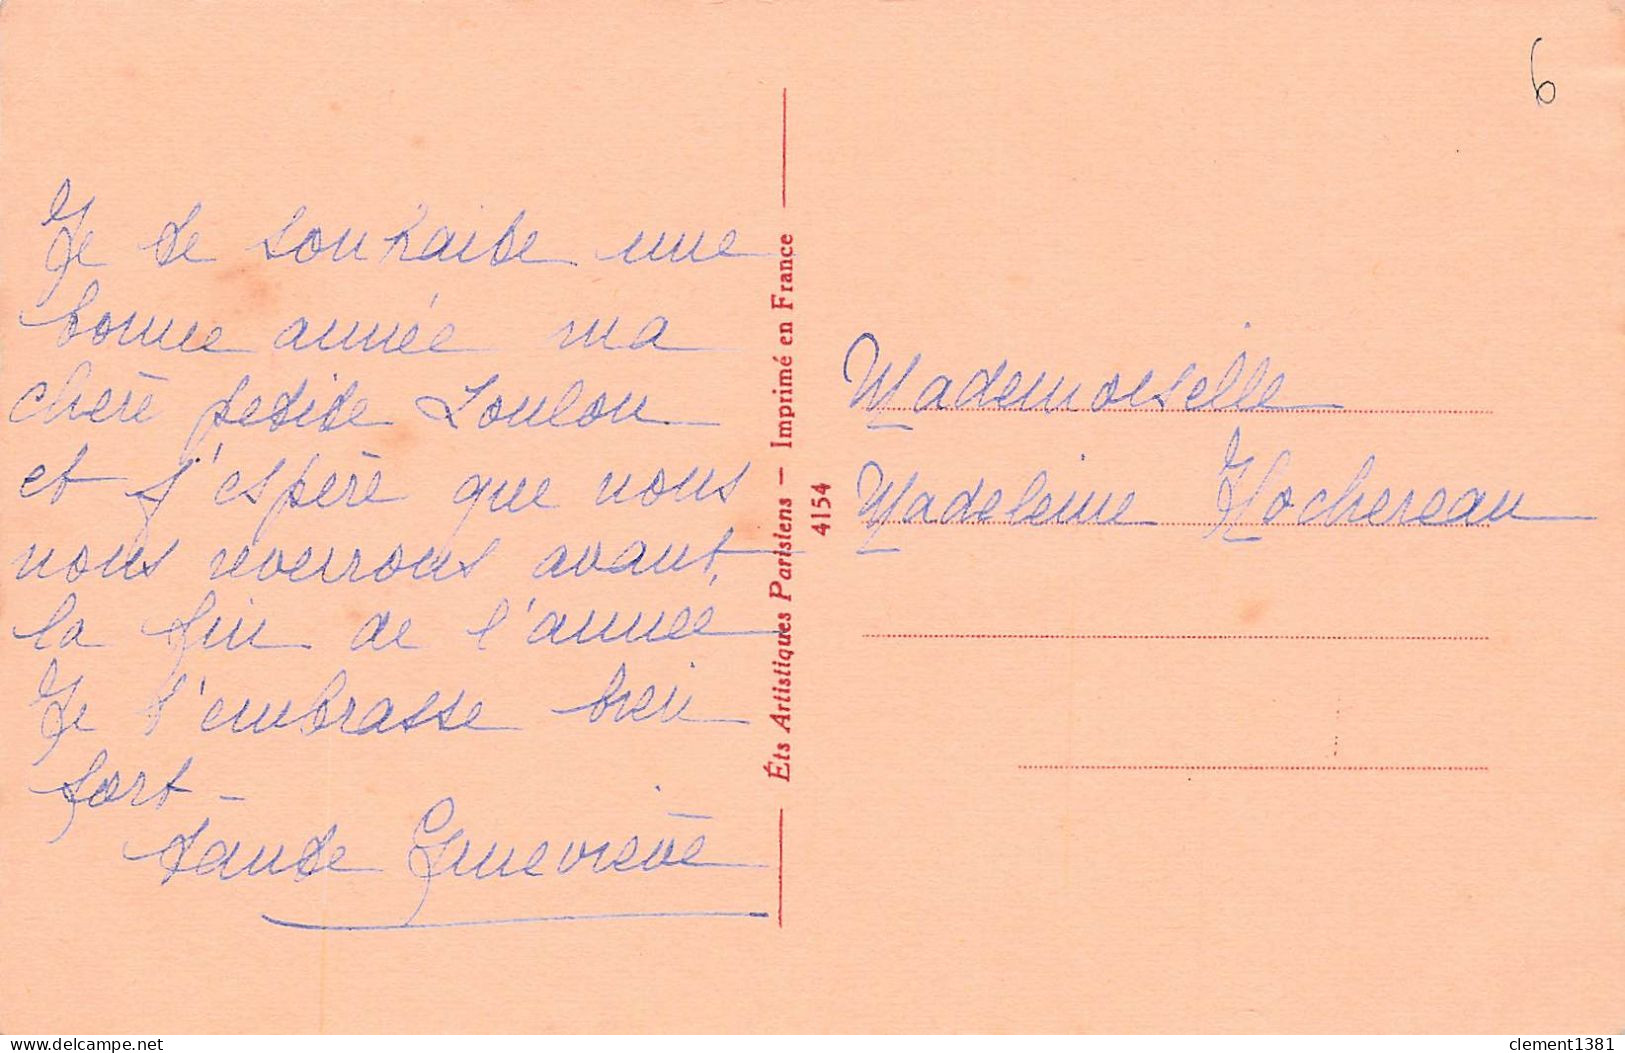 Je te souhaite une
bonne année ma
chère petite Loulou
et j'espère que nous
nous reverrons avant
la fin de l'année
Je t'embrasse bien
fort -
tante Geneviève
Éts Artistiques Parisiens — Imprimé en France
4154
6
Mademoiselle
Madeleine Hochereau
delcampe.net
clement1381